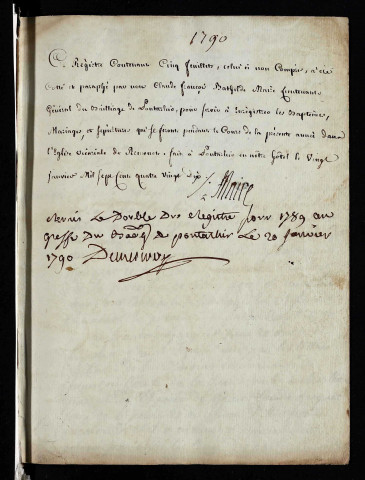 1790
Ce Registre Contenant Cinq feuillets, celui ci non Compris, a été
Cotté et paraphé par nous Claude françois Bathilde Maire Lieutenant
Général du Bailliage de Pontarlier, pour servir à Enregistrer les Baptêmes,
Mariages, et sépultures qui se feront pendant le Cours de la présente année dans
l'Eglise de Remonot. fait à Pontarlier en notre hôtel le Vingt
janvier Mil Sept Cent quatre Vingt dix
Maire
le Double Du Registre pour 1789 au
greffe Du de pontarlier Le 20 janvier
1790